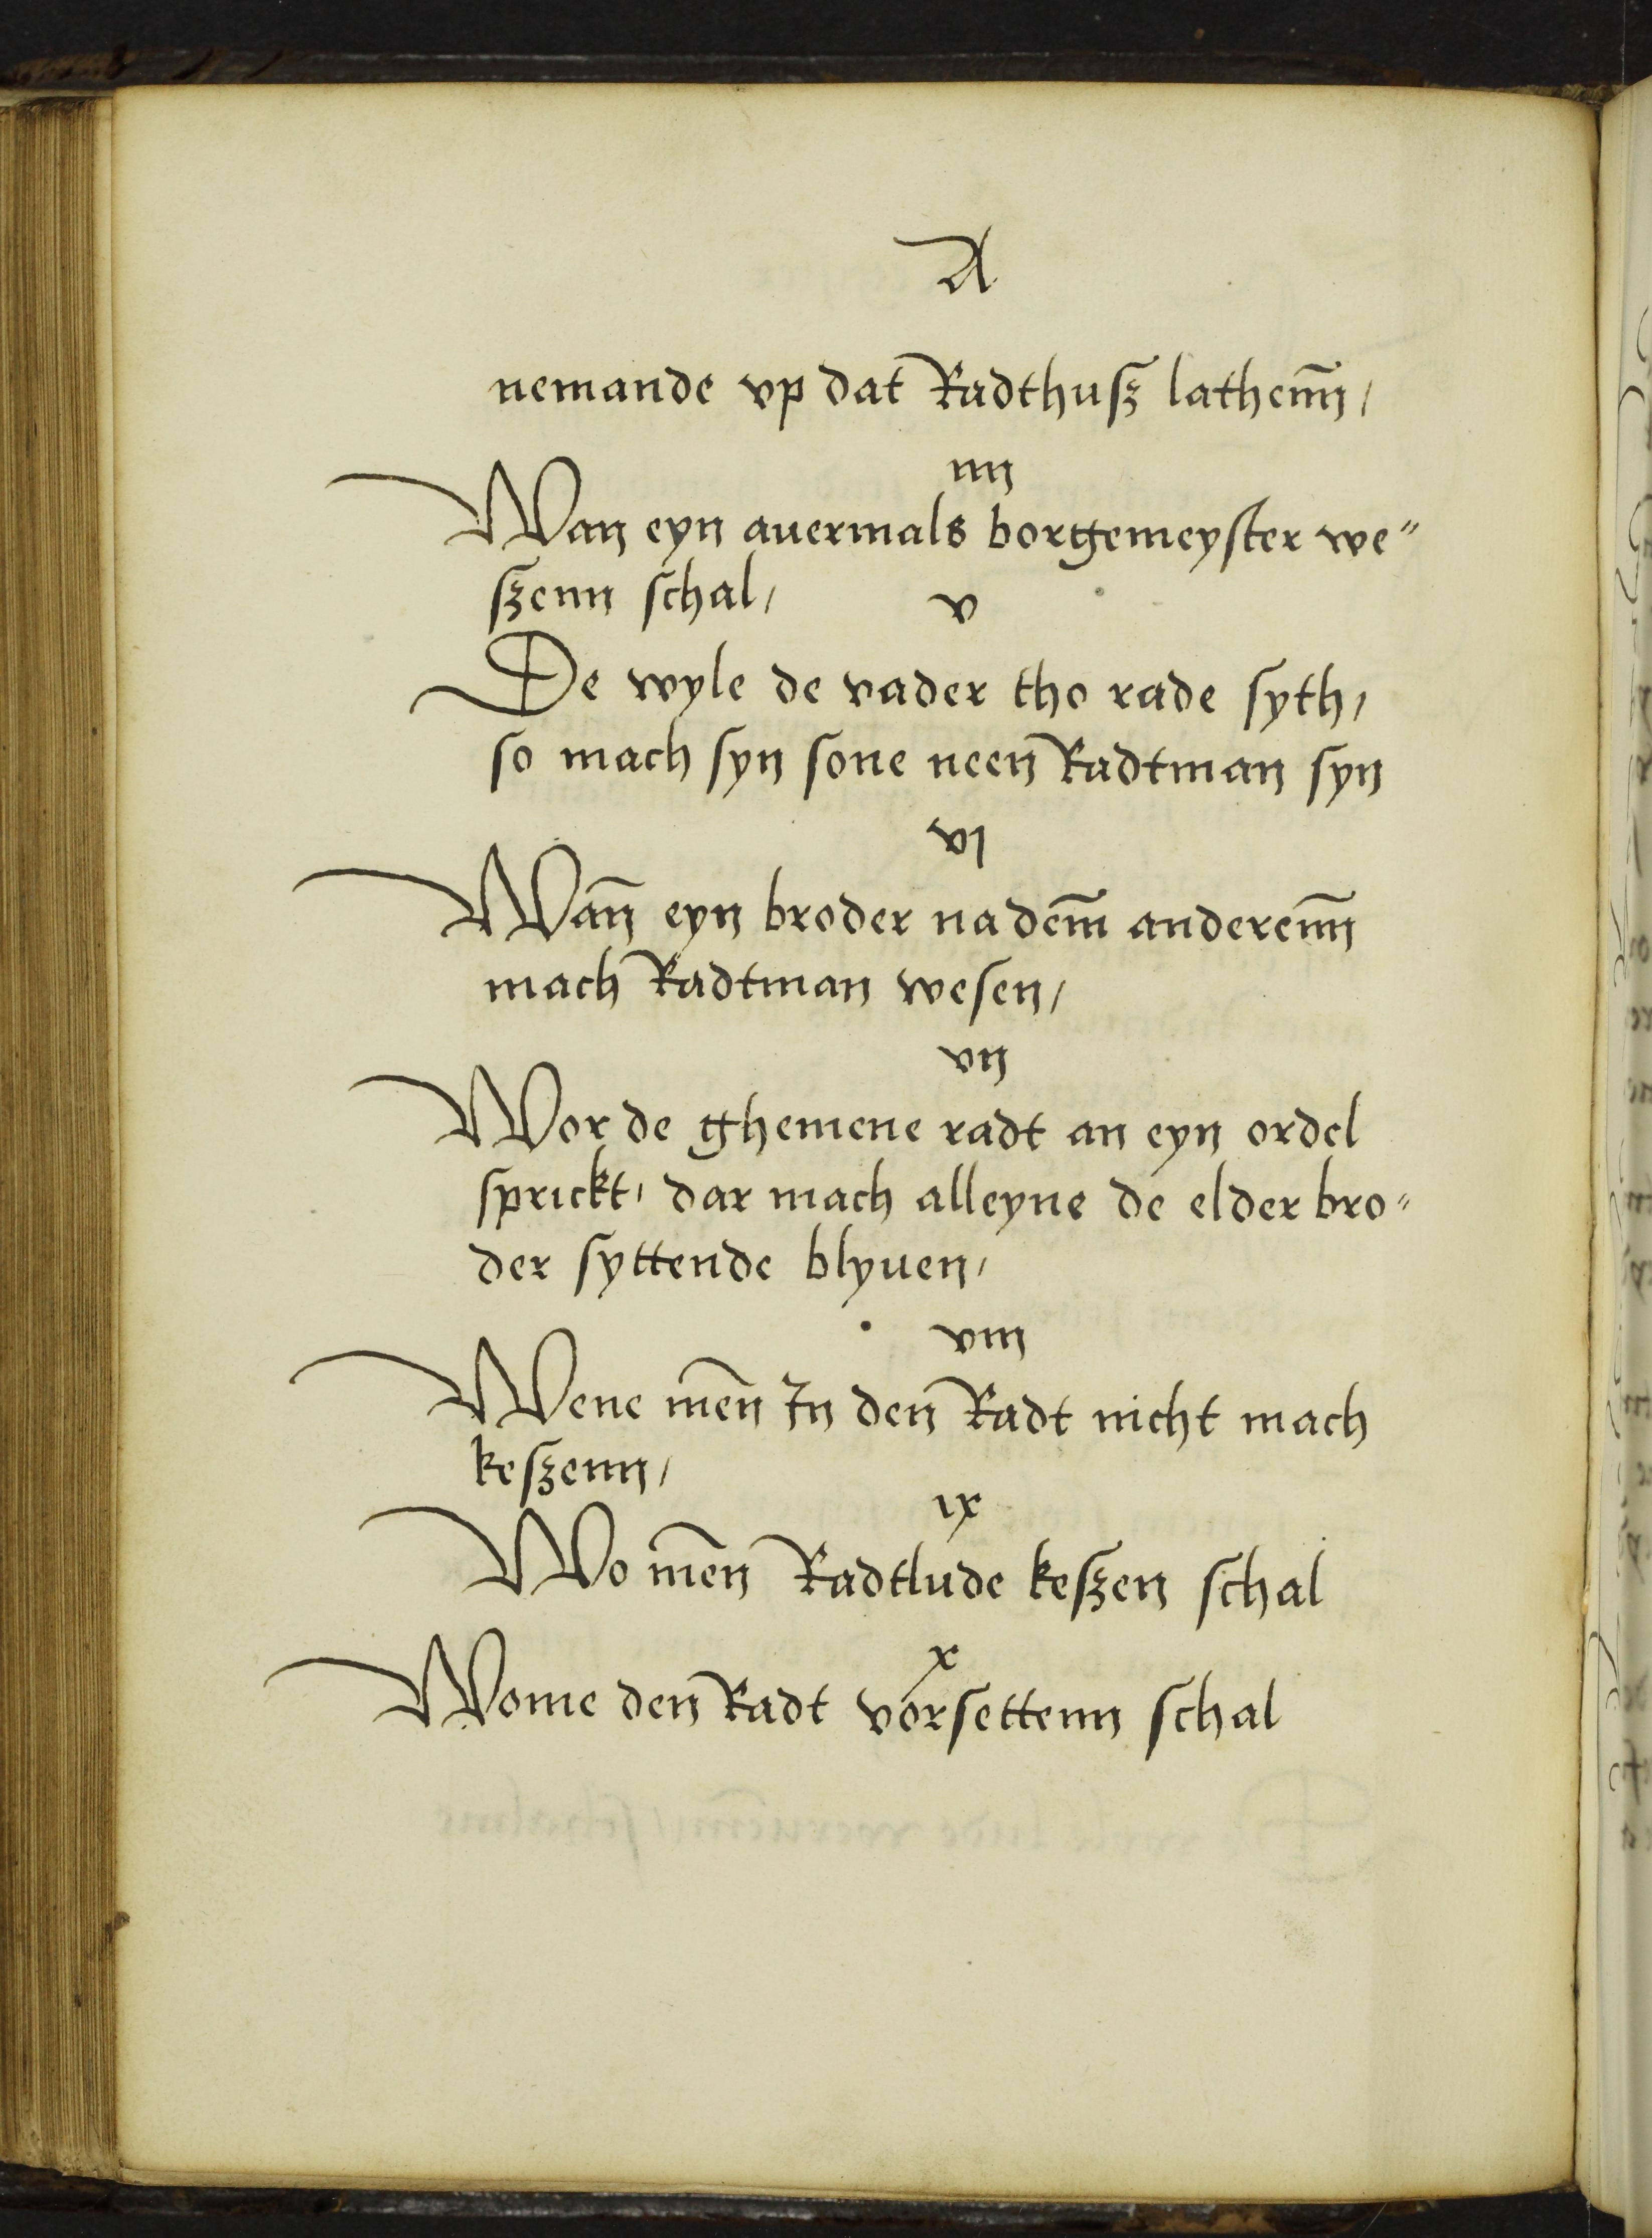 A
nemande vp dat Radthusz lathenn̄,
iiij
Wan eyn auermals borgemeyster we"
szenn schal,
v
De wyle de vader tho rade syth,
so mach syn sone neen Radtman syn
vj
Wan̄ eyn broder na dem̄ anderenn̄
mach Radtman wesen,
vij
Wor de ghemene radt an eyn ordel
sprickt, dar mach alleyne de elder bro"
der syttende blyuen,
viij
Wene men̄ In den Radt nicht mach
keszenn,
ix
Wo men̄ Radtlude keszen schal
x
Wome den Radt vorsettenn schal